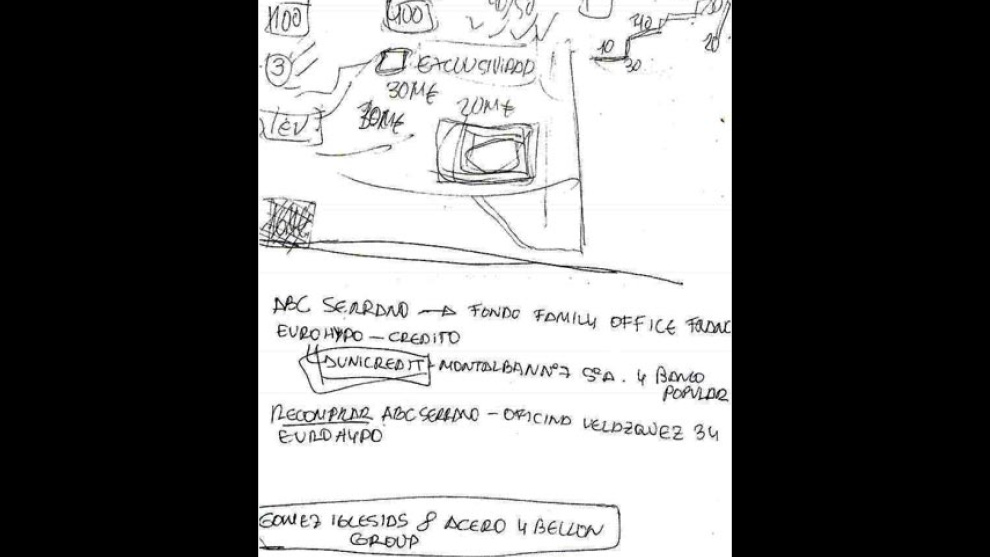 100
400
40/50
40
10
30
20
3
EXCLUSIVIDAD
30M€
20M€
30M€
1EV
ABC SERRANO → FONDO FAMILY OFFICE FRANC
EUROHYPO - CREDITO
UNICREDIT - MONTALBAN Nº7 5ºA. Y BANCO
POPULAR
RECOMPRAR ABC SERRANO - OFICINA VELAZQUEZ 34
EUROHYPO
GOMEZ IGLESIAS & ACERO Y BELLON
GROUP